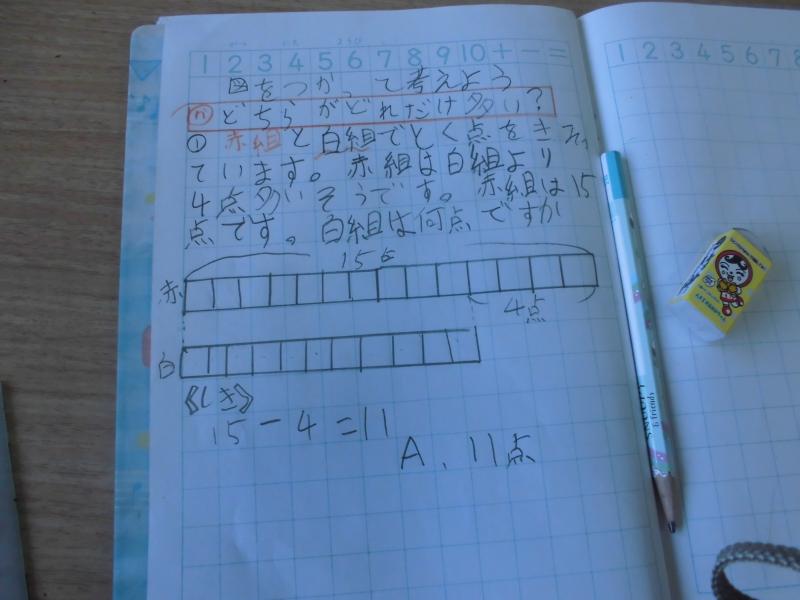 1 2 3 4 5 6 7 8 9 10 + - =
1 2 3 4 5 6 7 8
図をつかって考えよう
どちらがどれだけ多い?
① 赤組と白組でとく点をきそっ
ています。赤組は白組より
4点多いそうです。赤組は15
点です。白組は何点ですか
15点
赤
4点
白
《しき》
15-4=11
A、11点
& friends